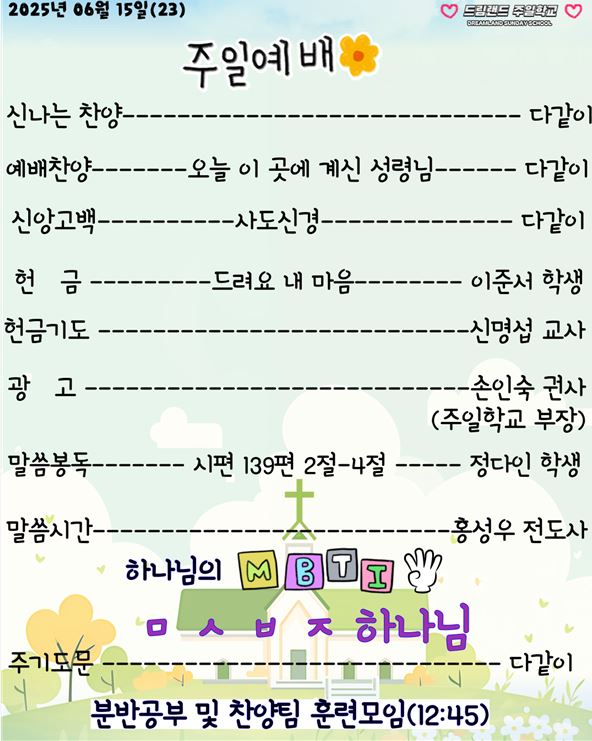 2025년 06월 15일(23)
드림랜드 주일학교
DREAMLAND SUNDAY SCHOOL
주일예배
신나는 찬양----------------------------- 다같이
예배찬양-------오늘 이 곳에 계신 성령님------ 다같이
신앙고백----------사도신경-------------- 다같이
헌 금 ---------드려요 내 마음-------- 이준서 학생
헌금기도 ---------------------------신명섭 교사
광 고 ----------------------------손인숙 권사
(주일학교 부장)
말씀봉독------- 시편 139편 2절-4절 ----- 정다인 학생
말씀시간--------------------------홍성우 전도사
하나님의 MBTI
ㅁ ㅅ ㅂ ㅈ 하나님
주기도문 ----------------------------- 다같이
분반공부 및 찬양팀 훈련모임(12:45)